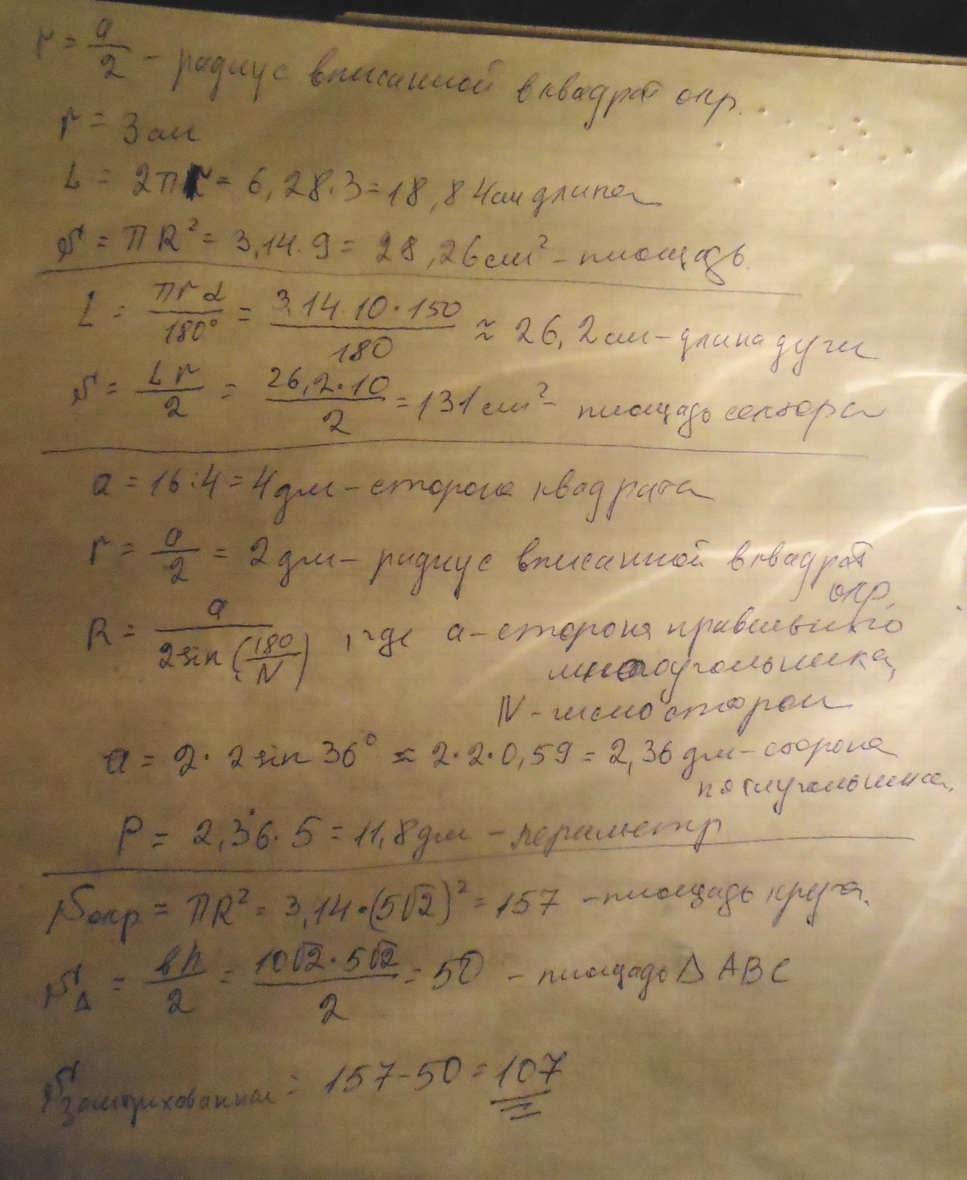 r = a/2 - радиус вписанной в квадрат окр.
r = 3 см
L = 2πr = 6,28·3 = 18,84 см длина
S = πR² = 3,14·9 = 28,26 см² - площадь.
L = πrα/180° = 3,14·10·150/180 ≈ 26,2 см - длина дуги
S = Lr/2 = 26,2·10/2 = 131 см² - площадь сектора
a = 16:4 = 4 дм - сторона квадрата
r = a/2 = 2 дм - радиус вписанной в квадрат
окр.
R = a/2sin(180/N), где a - сторона правильного
многоугольника,
N - число сторон
a = 2·2 sin 36° ≈ 2·2·0,59 = 2,36 дм - сторона
пятиугольника.
P = 2,36·5 = 11,8 дм - периметр
Sокр = πR² = 3,14·(5√2)² = 157 - площадь круга.
S∆ = bh/2 = 10√2·5√2/2 = 50 - площадь ∆ ABC
Sзаштрихованная = 157-50 = 107